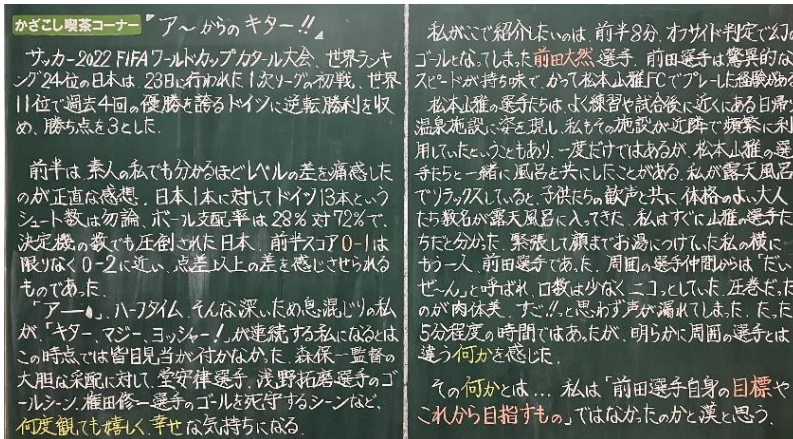 かざこし喫茶コーナー
『ア〜からのキター!!』
サッカー2022 FIFAワールドカップカタール大会、世界ランキ
ング24位の日本は、23日に行われた1次リーグの初戦、世界
11位で過去4回の優勝を誇るドイツに逆転勝利を収
め、勝ち点を3とした。
前半は、素人の私でも分かるほどレベルの差を痛感した
のが正直な感想。日本1本に対してドイツ13本という
シュート数は勿論、ボール支配率は28%対72%で、
決定機の数でも圧倒された日本。前半スコア0-1は
限りなく0-2に近い、点差以上の差を感じさせられる
ものであった。
「アー」、ハーフタイム、そんな深いため息混じりの私
が、「キター、マジー、ヨッシャー!」が連続する私になるとは
この時点では皆目見当が付かなかった。森保一監督の
大胆な采配に対して、堂安律選手、浅野拓磨選手のゴ
ールシーン、権田修一選手のゴールを死守するシーンなど、
何度観ても嬉しく、幸せな気持ちになる。
私がここで紹介したいのは、前半8分、オフサイド判定で幻の
ゴールとなってしまった前田大然選手。前田選手は驚異的な
スピードが持ち味で、かつて松本山雅FCでプレーした経験がある
松本山雅の選手たちは、よく練習や試合後に近くにある日帰り
温泉施設に姿を現し、私もその施設が近隣で頻繁に利
用していたということもあり、一度だけではあるが、松本山雅の選
手たちと一緒に風呂を共にしたことがある。私が露天風呂
でリラックスしていると、子供たちの歓声と共に、体格のよい大人
たち数名が露天風呂に入ってきた。私はすぐに山雅の選手た
ちだと分かった。緊張して顔までお湯につけていた私の横に
もう一人、前田選手であった。周囲の選手仲間からは「だい
ぜ〜ん」と呼ばれ、口数は少なくニコっとしていた。圧巻だった
のが肉体美。すご!!っと思わず声が漏れてしまった。たった
5分程度の時間ではあったが、明らかに周囲の選手とは
違う何かを感じた。
その何かとは… 私は「前田選手自身の目標や
これから目指すもの」ではなかったのかと漠と思う。